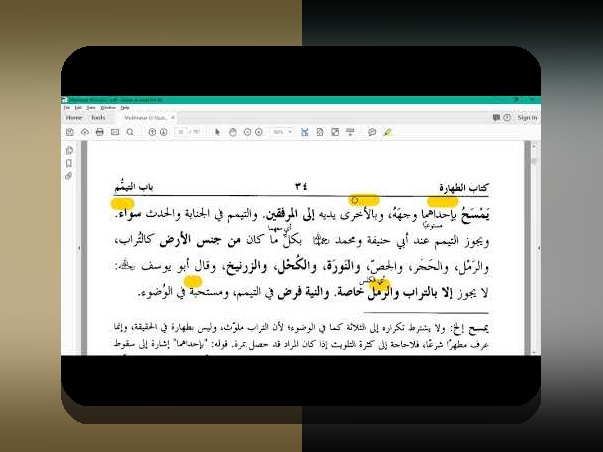 Home Tools Sign In
كتاب الطهارة ٣٤ باب التيمُّم
يَمْسَحُ بإحداهما وجهَهُ، وبالأخرى يديه إلى المرفقين. والتيمم في الجنابة والحدث سواء.
ويجوز التيمم عند أبي حنيفة ومحمد بكلّ ما كان من جنس الأرض كالتُّراب،
والرَّمْل، والحَجَر، والجصّ، والنورَة، والكُحْل، والزرنيخ، وقال أبو يوسف:
لا يجوز إلا بالتراب والرمل خاصة. والنية فرض في التيمم، ومستحبة في الوُضوء.
يمسح إلخ: ولا يشترط تكراره إلى الثلاثة كما في الوضوء؛ لأن التراب ملوّث، وليس بطهارة في الحقيقة، وإنما
عرف مطهرًا شرعًا، فلا حاجة إلى كثرة التلويث إذا كان المراد قد حصل بمرة. قوله: "بإحداهما" إشارة إلى سقوط